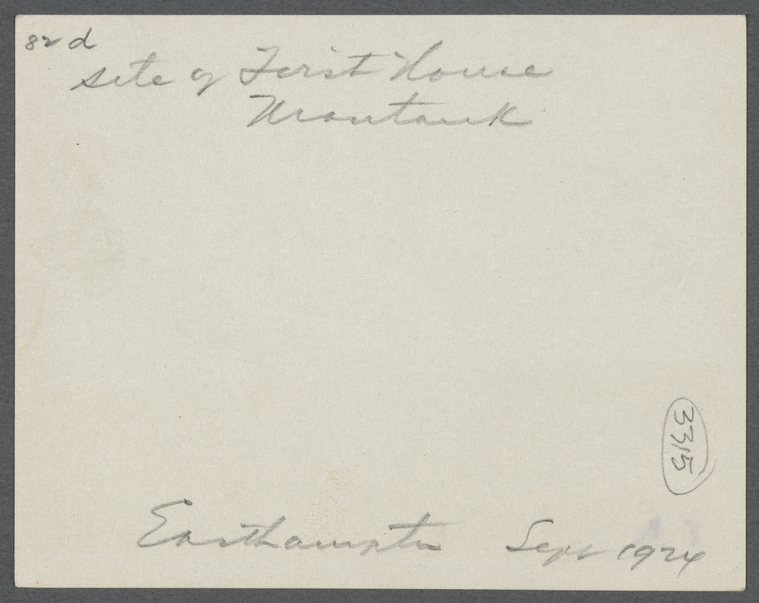 82 d
site of First House
Montauk
3315
Easthampton Sept 1924